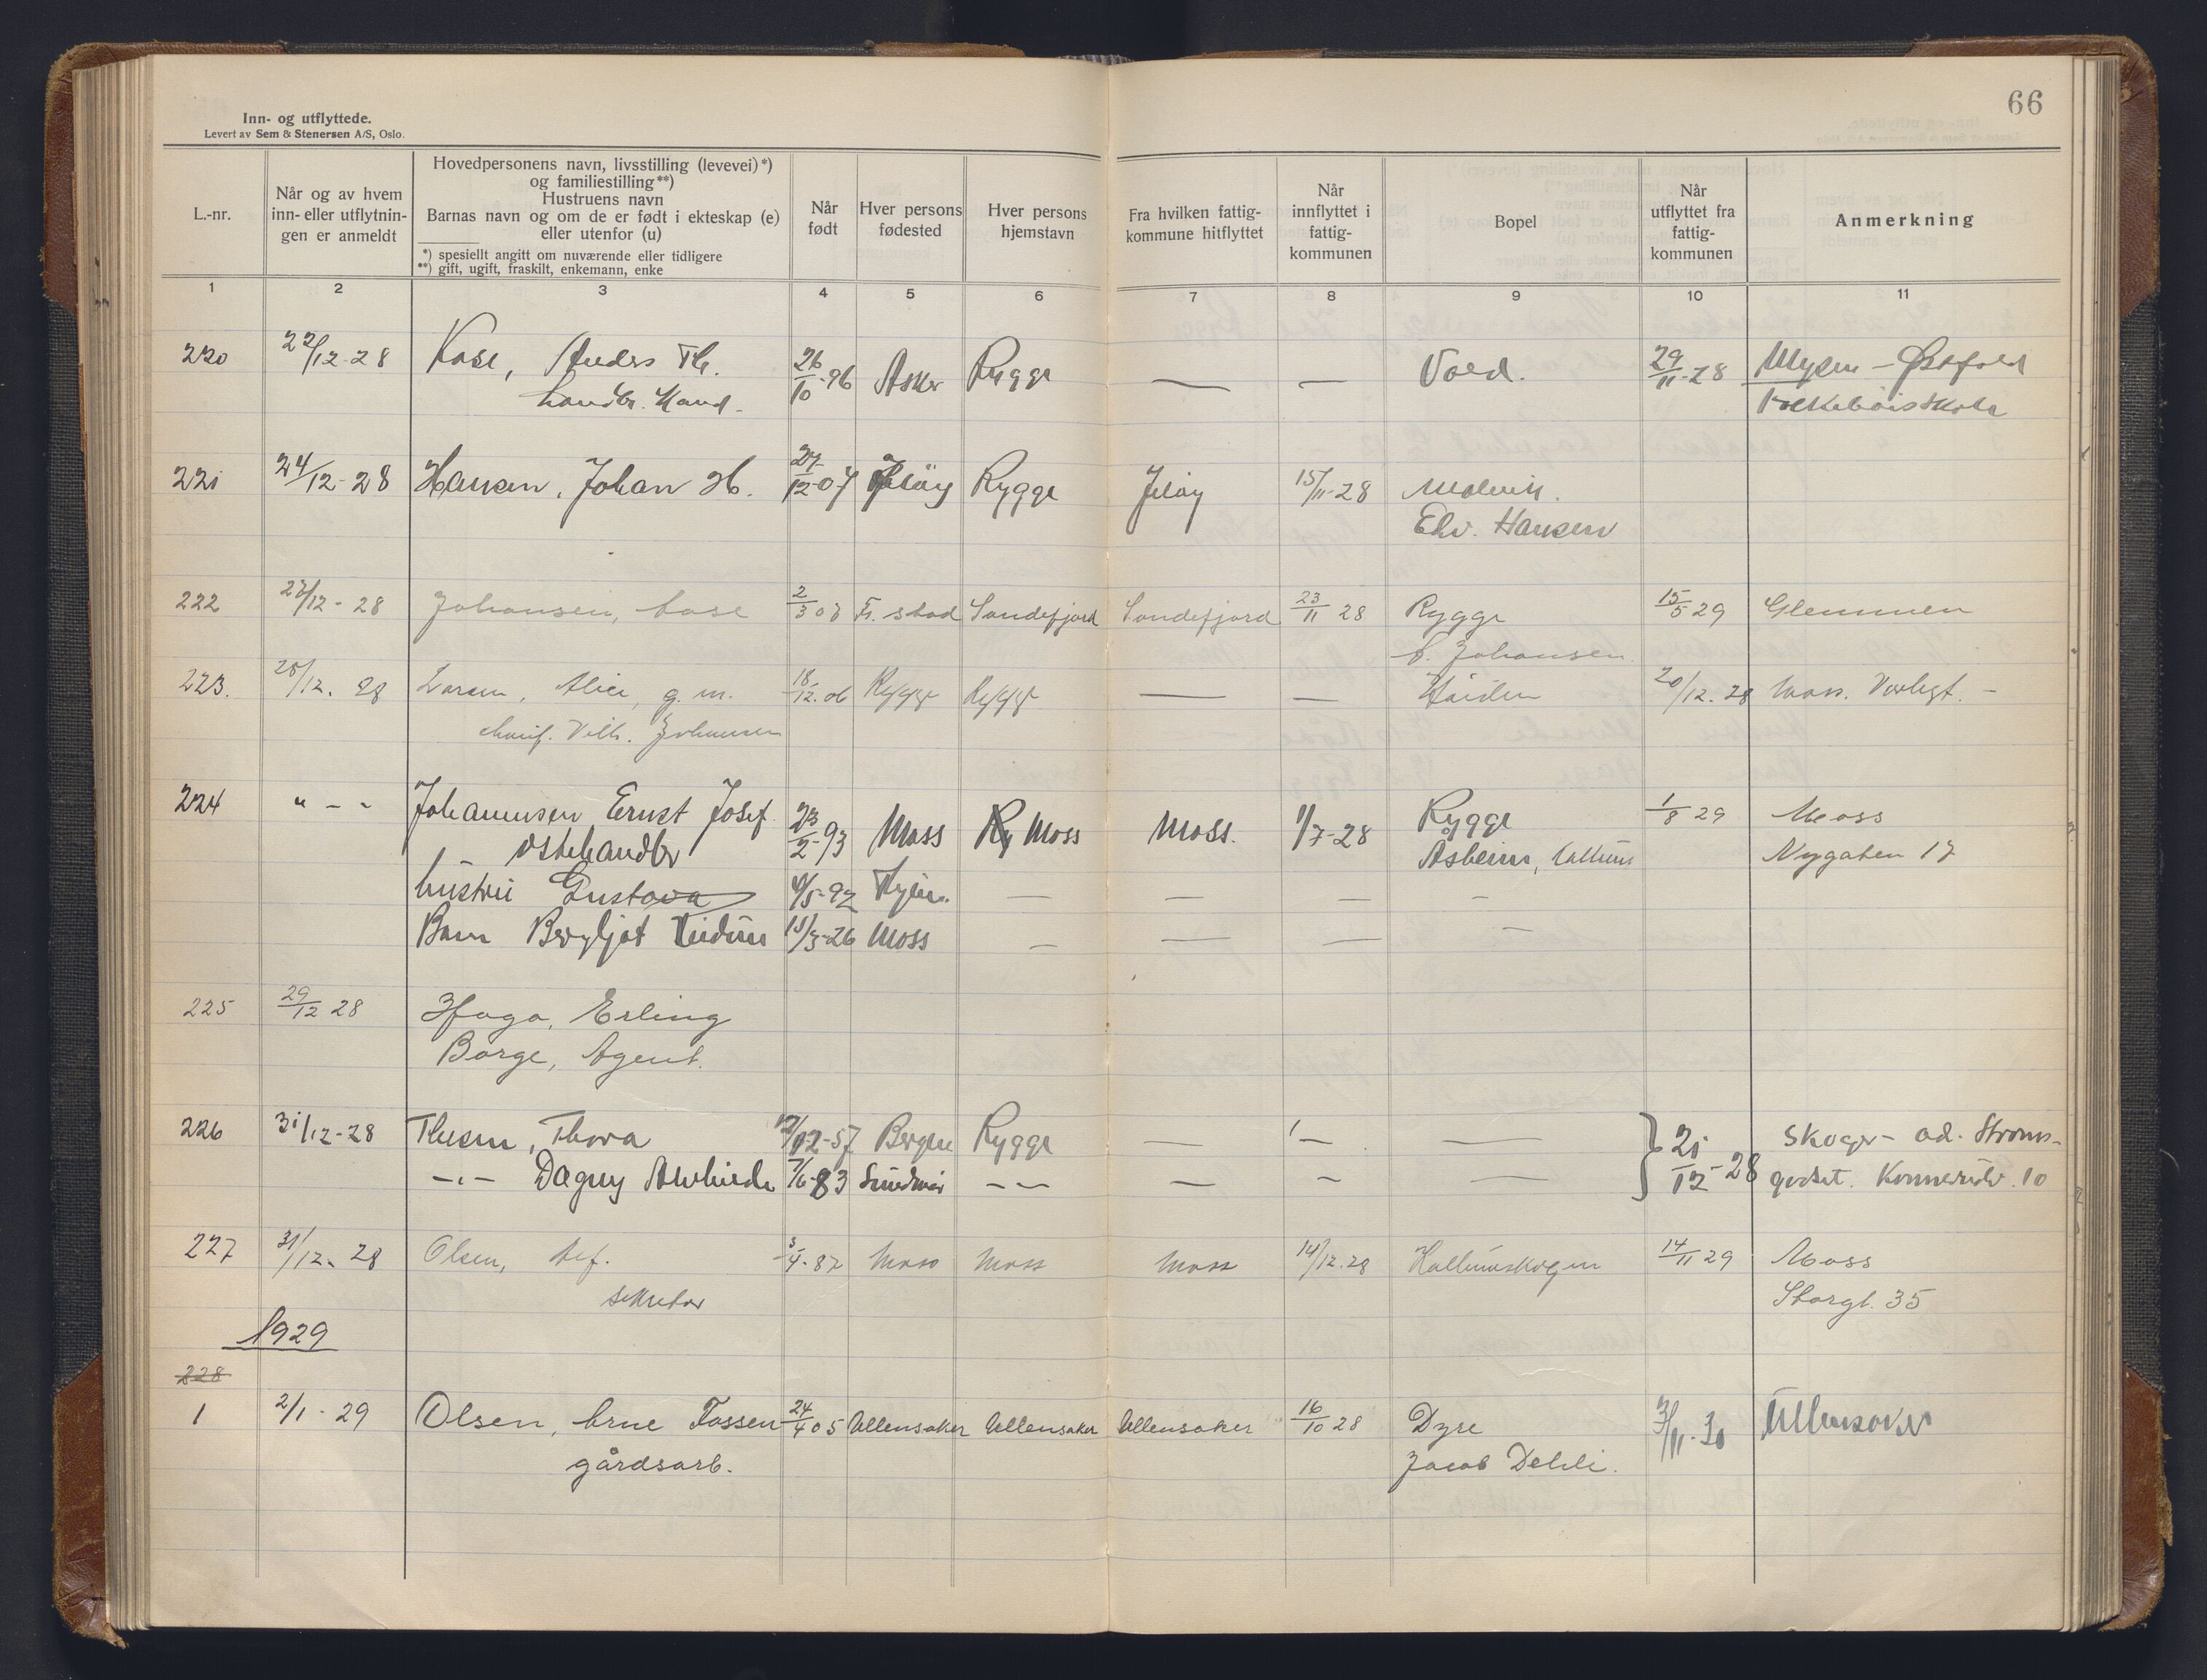 66
Inn- og utflyttede.
Levert av Sem & Stenersen A/S, Oslo.
L.-nr.
Når og av hvem
inn- eller utflytnin-
gen er anmeldt
Hovedpersonens navn, livsstilling (levevei)*)
og familiestilling**)
Hustruens navn
Barnas navn og om de er født i ekteskap (e)
eller utenfor (u)
*) spesiellt angitt om nuværende eller tidligere
**) gift, ugift, fraskilt, enkemann, enke
Når
født
Hver persons
fødested
Hver persons
hjemstavn
Fra hvilken fattig-
kommune hitflyttet
Når
innflyttet i
fattig-
kommunen
Bopel
Når
utflyttet fra
fattig-
kommunen
Anmerkning
1 2 3 4 5 6 7 8 9 10 11
220 22/12-28 Kase, Anders Th. 26/10-96 Asker Rygge — — Vold. 29/11-28 Mysen - Østfold
landbr. kand.
221 24/12-28 Hansen, Johan H. 27/12-07 Jeløy Rygge Jeløy 15/11-28
Edv. Hansen
222 27/12-28 Johansen, Aase 2/3 07 Fr. stad Sandefjord Sandefjord 23/11 28 Rygge 15/5 29 Glemmen
Johansen
223. 28/12. 28 Larsen, Alice, g. m. 18/12. 06 Rygge Rygge — — Høiden 20/12. 28 Moss. Varlegt. -
chauf. Vilh. Johansen
224 " - - Johannesen Ernst Josef 23/2-93 Moss Ry Moss Moss. 1/7-28 Rygge 1/8 29 Moss
ostehandler Asheim, Nygaten 17
hustru Gustava 4/5-92 — — — -
Barn Bergljot 15/3-26 Moss — — — -
225 29/12 28 Haga, Erling
Borge, Agent.
226 31/12-28 Thesen, Thora 12/12-57 Bergen Rygge — — — } 21/12-28 Skoger - ad. Strøms-
-"- Dagny 7/6-83 - - — - — godset. 10
227 31/12. 28 Olsen, 3/4-87 Moss Moss Moss 14/12. 28 Hallumskogen 14/11 29 Moss
sekretær Storgt. 35
1929
228
1 2/1-29 Olsen, Arne Fossen 24/4 05 Ullensaker Ullensaker Ullensaker 16/10 28 Dyre 3/11-30 Ullensaker
gårdsarb. Jacob Dehli.